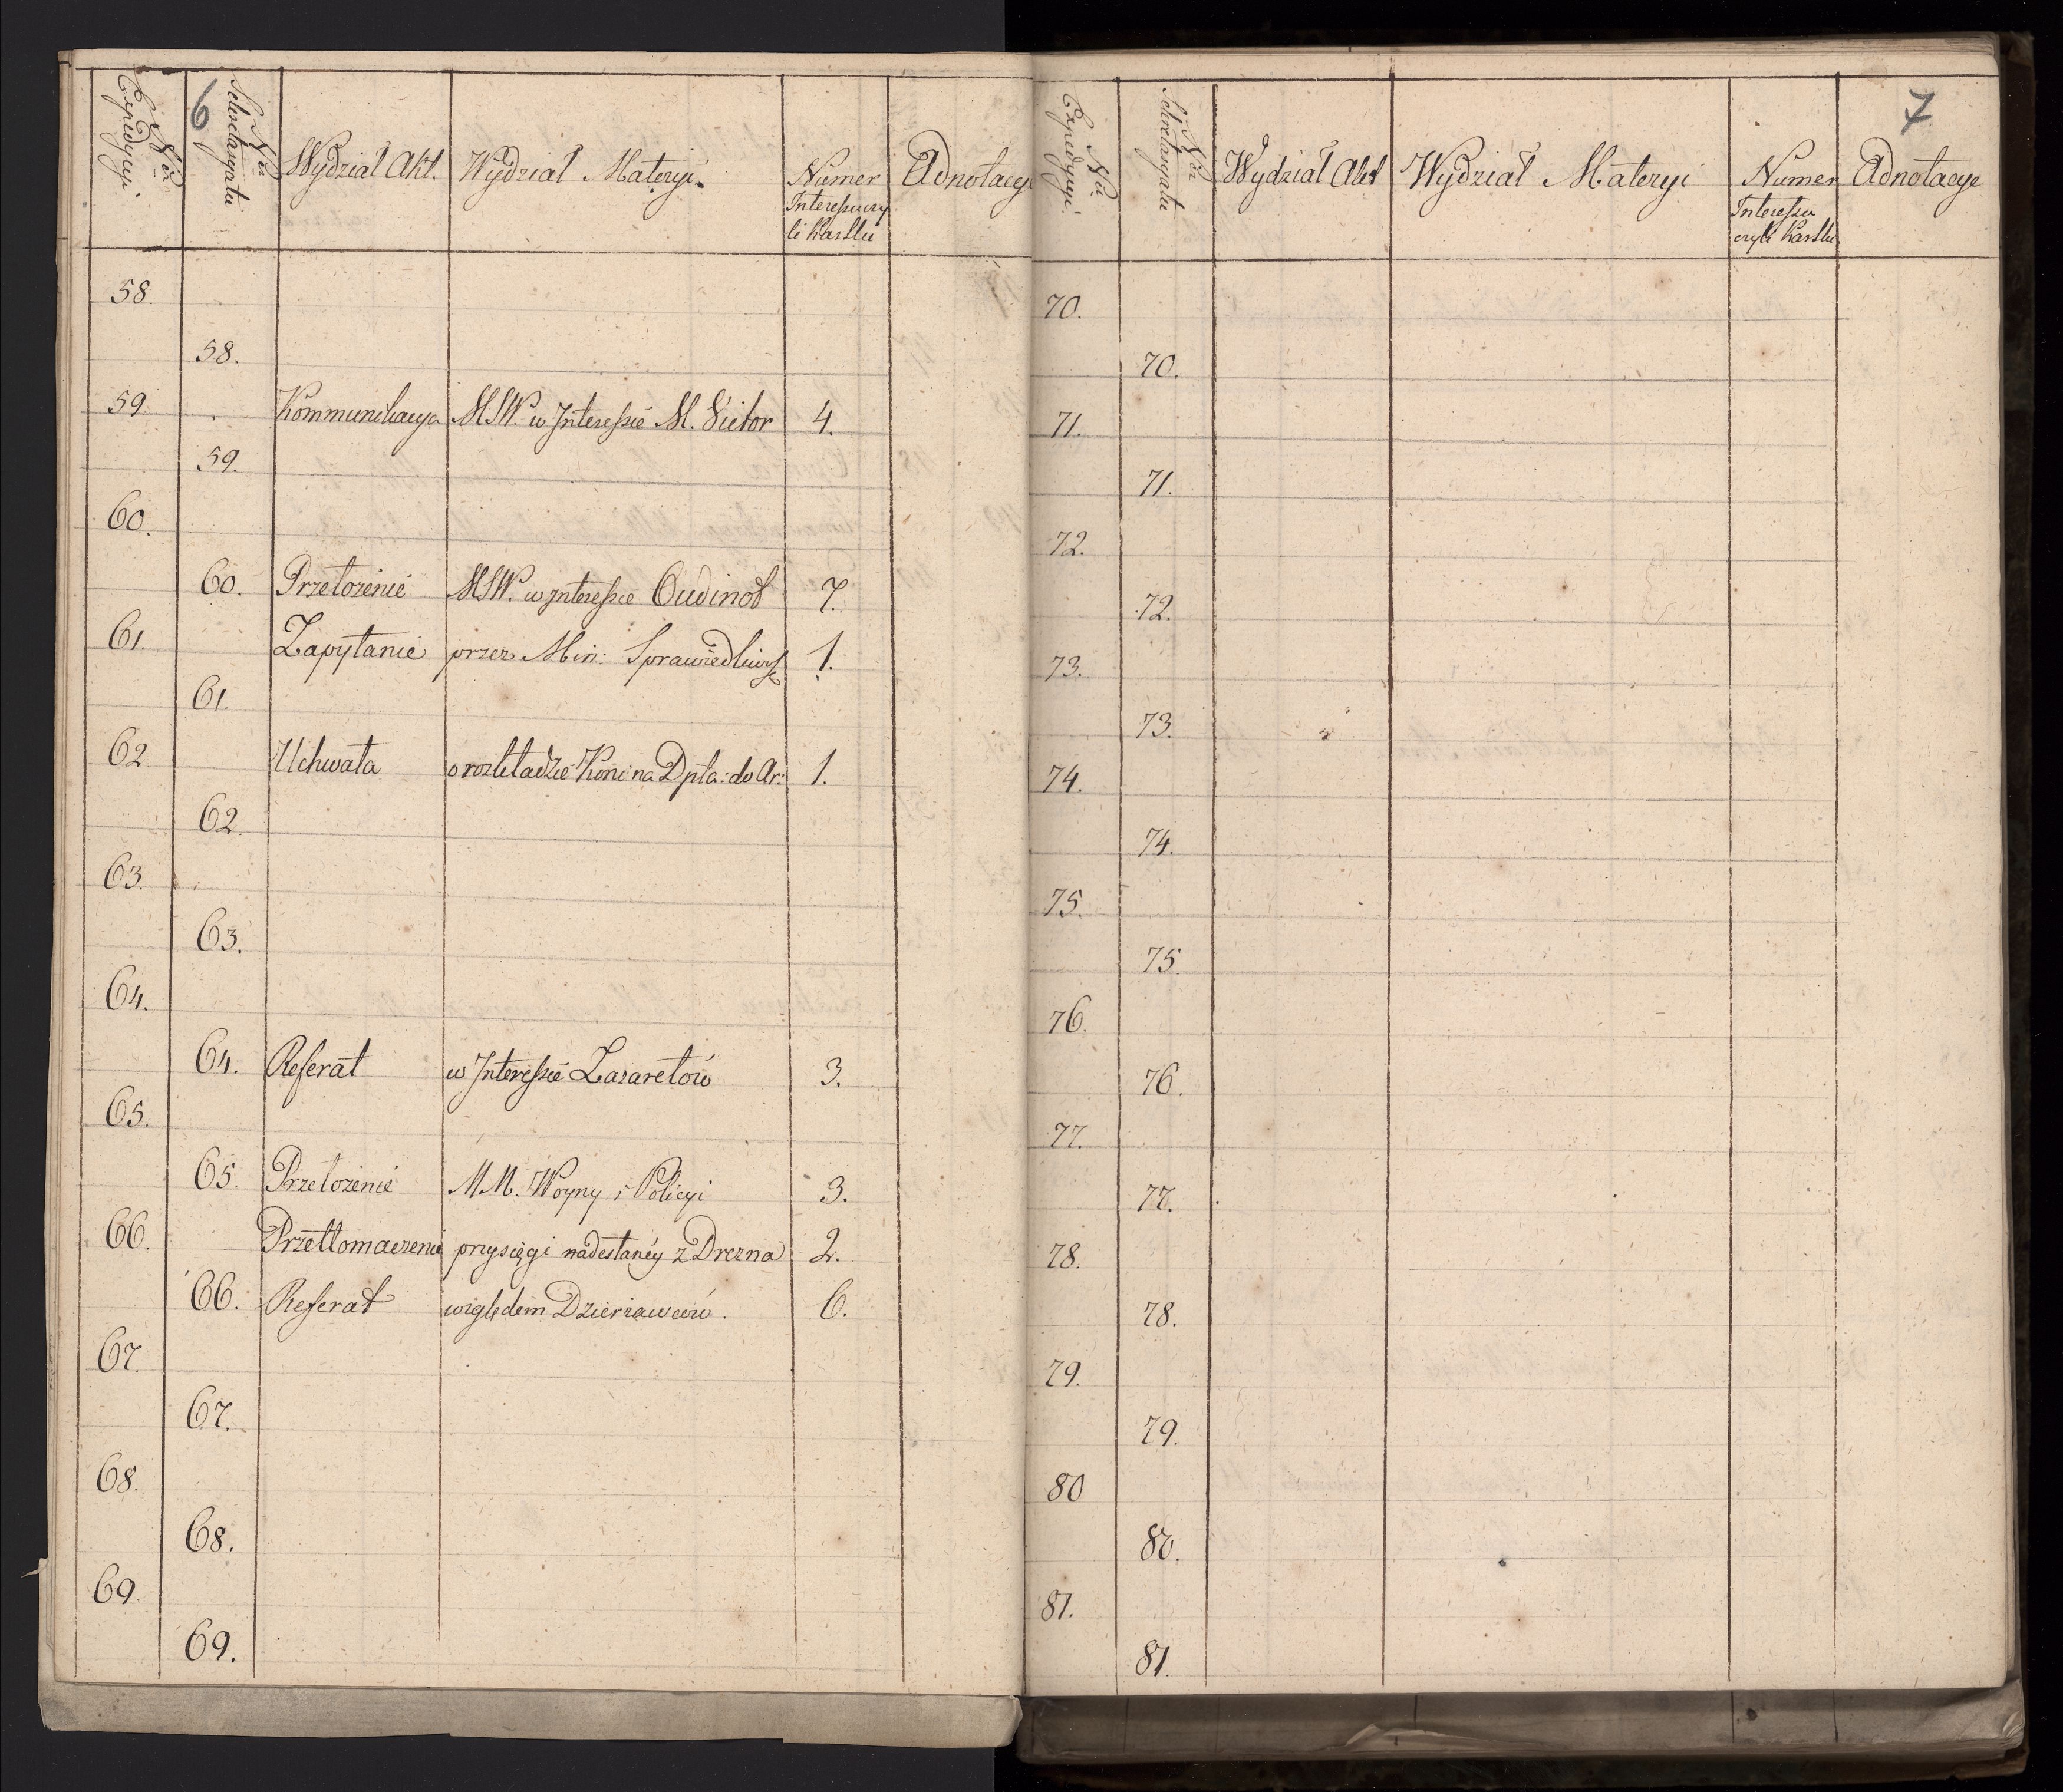 6
Nro Expedycyi
Nro Sekretaryatu
Wydział Akt.
Wydział Materyi.
Numer Interessu czyli Kartki
Adnotacye
58.
58.
59. Kommunikacya MSW. w Interessie M. Victor 4.
59.
60.
60. Przełożenie MSW. w Interessie Oudinot 7.
61. Zapytanie przez Min: Sprawiedliwoś 1.
61.
62 Uchwała o rozkładzie Koni na Dpta: do Ar: 1.
62.
63.
63.
64.
64. Referat w Interessie Lazaretów 3.
65.
65. Przełożenie MM. Woyny i Policyi 3.
66. Przetłomaczenie przysięgi nadesłanéy z Drezna 2.
66. Referat względem Dzierzawców. 6.
67.
67.
68.
68.
69.
69.
7
Nro Expedycyi.
Nro Sekretaryatu
Wydział Akt
Wydział Materyi
Numer Interessu czyli Kartki
Adnotacye
70.
70.
71.
71.
72.
72.
73.
73.
74.
74.
75.
75.
76.
76.
77.
77.
78.
78.
79.
79.
80
80.
81.
81.